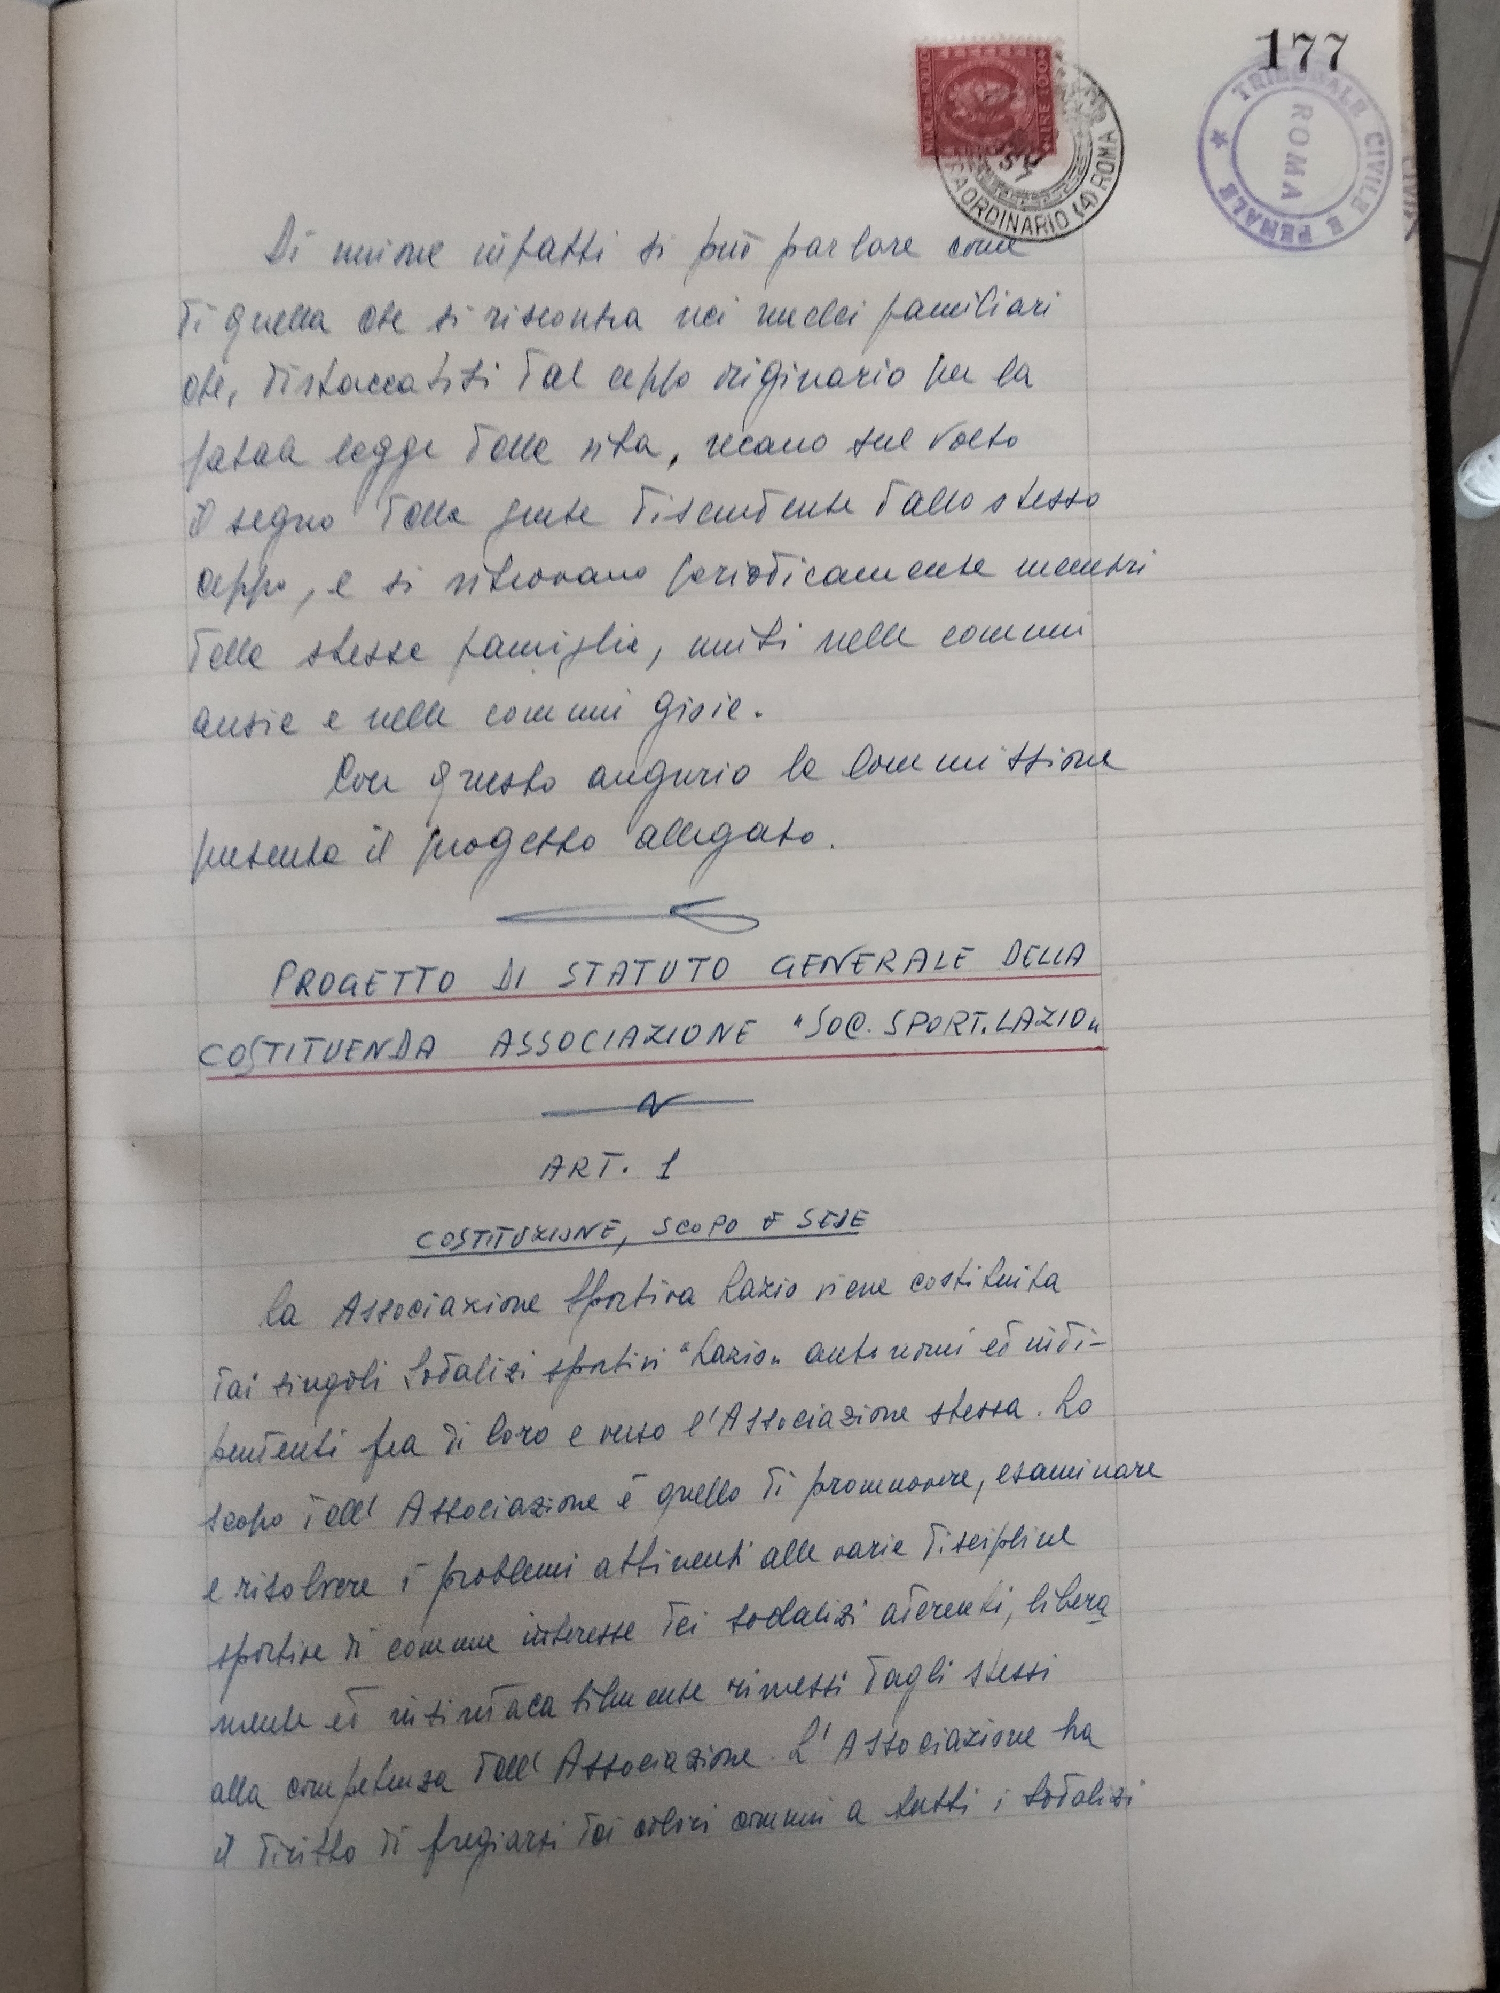 177
TRIBUNALE CIVILE E PENALE
ROMA
LIRE 100
AORDINARIO (4) ROMA
Di unione infatti si può parlare come
di quella che si riscontra nei nuclei familiari
che, distaccatisi dal ceppo originario per la
fatale legge della vita, recano sul volto
il segno della gente discendente dallo stesso
ceppo, e si ritrovano periodicamente membri
della stessa famiglia, uniti nelle comuni
ansie e nelle comuni gioie.
Con questo augurio la Commissione
presenta il progetto allegato.
PROGETTO DI STATUTO GENERALE DELLA
COSTITUENDA ASSOCIAZIONE "SOC. SPORT. LAZIO"
ART. 1
COSTITUZIONE, SCOPO E SEDE
La Associazione Sportiva Lazio viene costituita
dai singoli Sodalizi sportivi "Lazio" autonomi ed indi-
pendenti fra di loro e verso l'Associazione stessa. Lo
scopo dell'Associazione è quello di promuovere, esaminare
e risolvere i problemi attinenti alle varie discipline
sportive di comune interesse dei sodalizi aderenti, libera
mente ed insindacabilmente rimessi dagli stessi
alla competenza dell'Associazione. L'Associazione ha
il diritto di fregiarsi dei colori comuni a tutti i Sodalizi